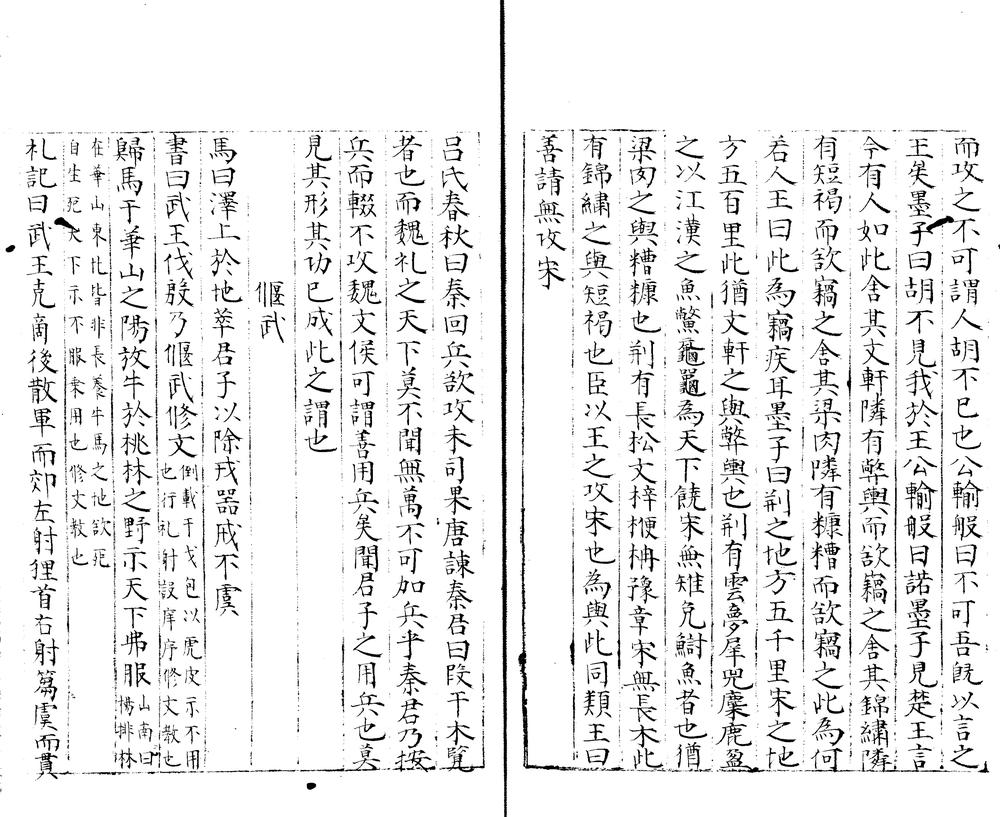 而攻之不可謂人胡不已也公輸般曰不可吾旣以言之
王矣墨子曰胡不見我於王公輸般曰諾墨子見楚王言
今有人如此舍其文軒隣有弊輿而欲竊之舍其錦繡隣
有短褐而欲竊之舍其梁肉隣有糠糟而欲竊之此為何
若人王曰此為竊疾耳墨子曰荆之地方五千里宋之地
方五百里此猶文軒之與弊輿也荆有雲夢犀兕麋鹿盈
之以江漢之魚鱉黿鼉為天下饒宋無雉兔鮒魚者也猶
梁肉之與糟糠也荆有長松文梓楩枏豫章宋無長木此
有錦繡之與短褐也臣以王之攻宋也為與此同類王曰
善請無攻宋
呂氏春秋曰秦回兵欲攻未司果唐諫秦君曰段干木賢
者也而魏礼之天下莫不聞無萬不可如兵乎秦君乃按
兵而輟不攻魏文侯可謂善用兵矣聞君子之用兵也莫
見其形其功已成此之謂也
偃武
馬曰澤上於地萃君子以除戎器戒不虞
書曰武王伐殷乃偃武修文倒載干戈包以虎皮示不用
也行礼射設庠序修文敎也
歸馬于華山之陽放牛於桃林之野示天下弗服山南曰
陽桃林
在華山東北皆非長養牛馬之地欲死
自生死天下示不服乗用也修文敎也
礼記曰武王克商後散軍而郊左射狸首右射蒭虞而貫